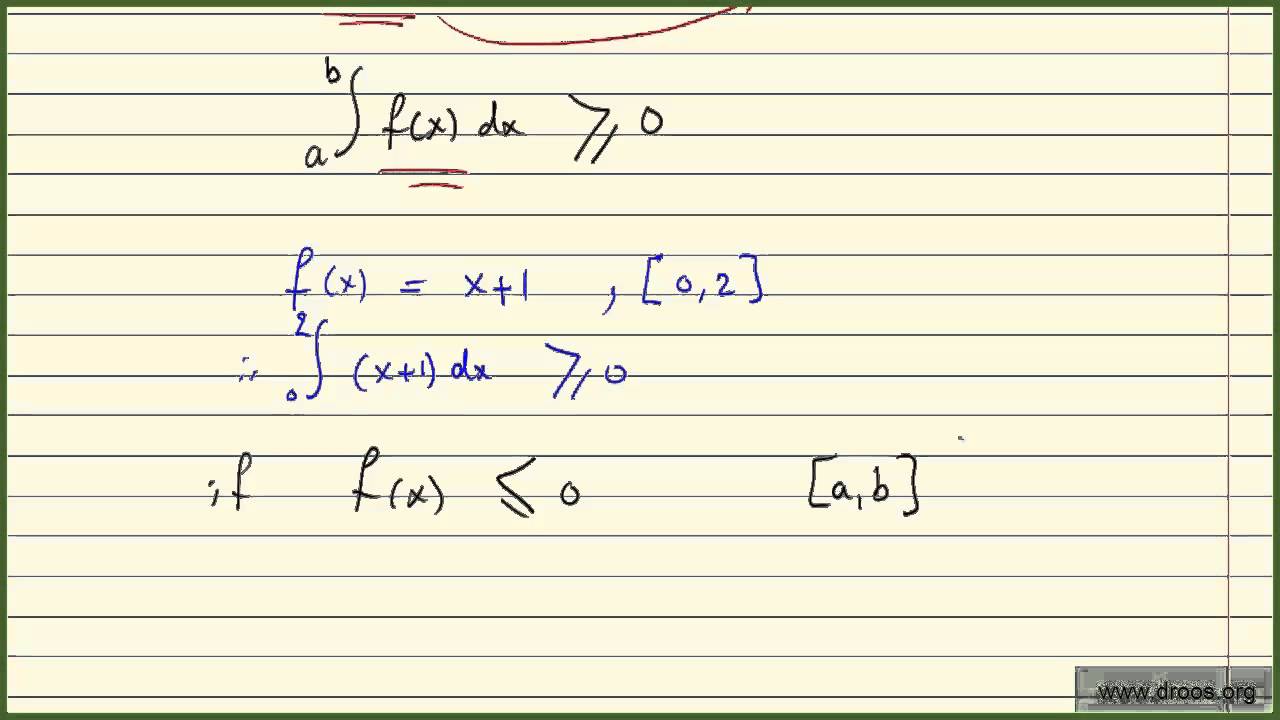 ∫ₐᵇ f(x) dx ≥ 0
f(x) = x+1 , [0,2]
∴ ∫₀² (x+1) dx ≥ 0
if f(x) ≤ 0 [a,b]
www.droos.org